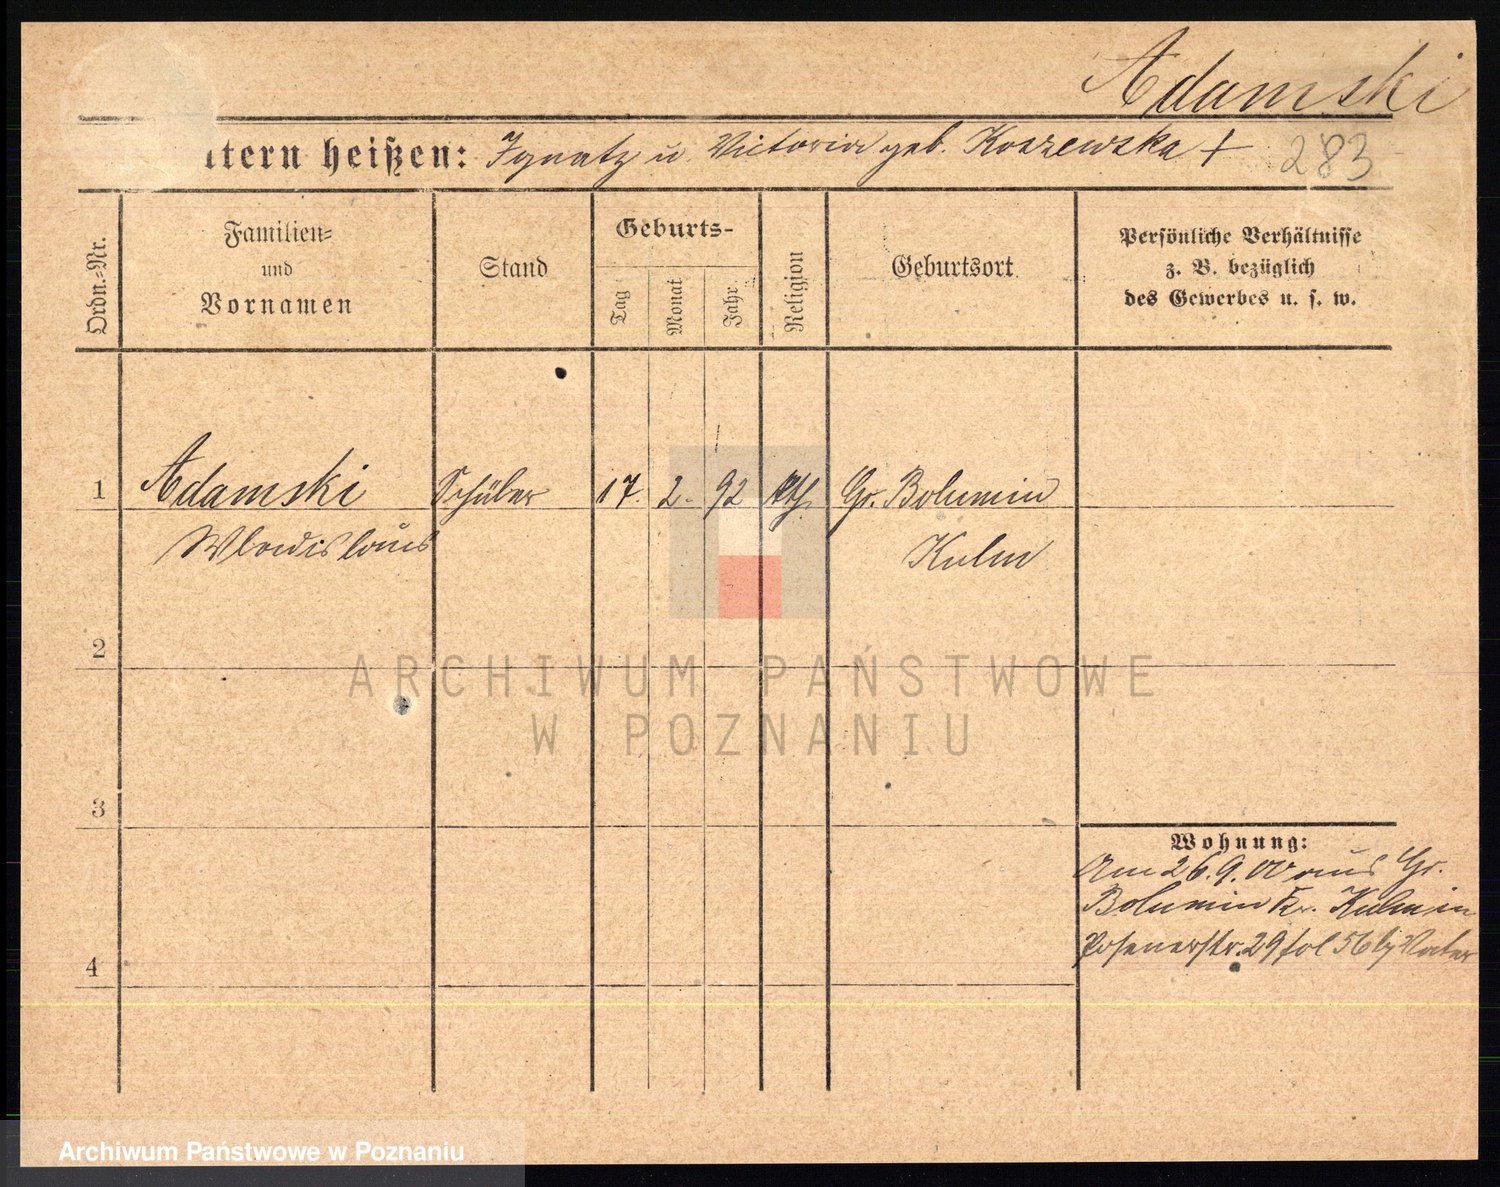 Adamski
ltern heißen: Ignatz u. Victoria geb. Koszewska +
283
Ordn.-Nr.
Familien-
und
Vornamen
Stand
Geburts-
Tag
Monat
Jahr
Religion
Geburtsort
Persönliche Verhältnisse
z. B. bezüglich
des Gewerbes u. s. w.
1 Adamski Schüler 17. 2. 92 kth. Gr. Bolumin
Wladislaus Kulm
2
3
4
Wohnung:
Am 26.9.00 aus Gr.
Bolumin Kr. Kulm in
Posenerstr. 29 fol 56 bj Vater
ARCHIWUM PAŃSTWOWE
W POZNANIU
Archiwum Państwowe w Poznaniu